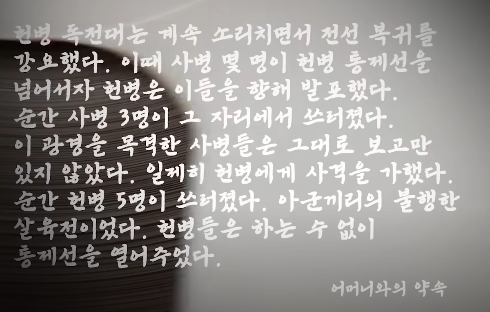 헌병 독전대는 계속 소리치면서 전선 복귀를
강요했다. 이때 사병 몇 명이 헌병 통제선을
넘어서자 헌병은 이들을 향해 발포했다.
순간 사병 3명이 그 자리에서 쓰러졌다.
이 광경을 목격한 사병들은 그대로 보고만
있지 않았다. 일제히 헌병에게 사격을 가했다.
순간 헌병 5명이 쓰러졌다. 아군끼리의 불행한
살육전이었다. 헌병들은 하는 수 없이
통제선을 열어주었다.
어머니와의 약속